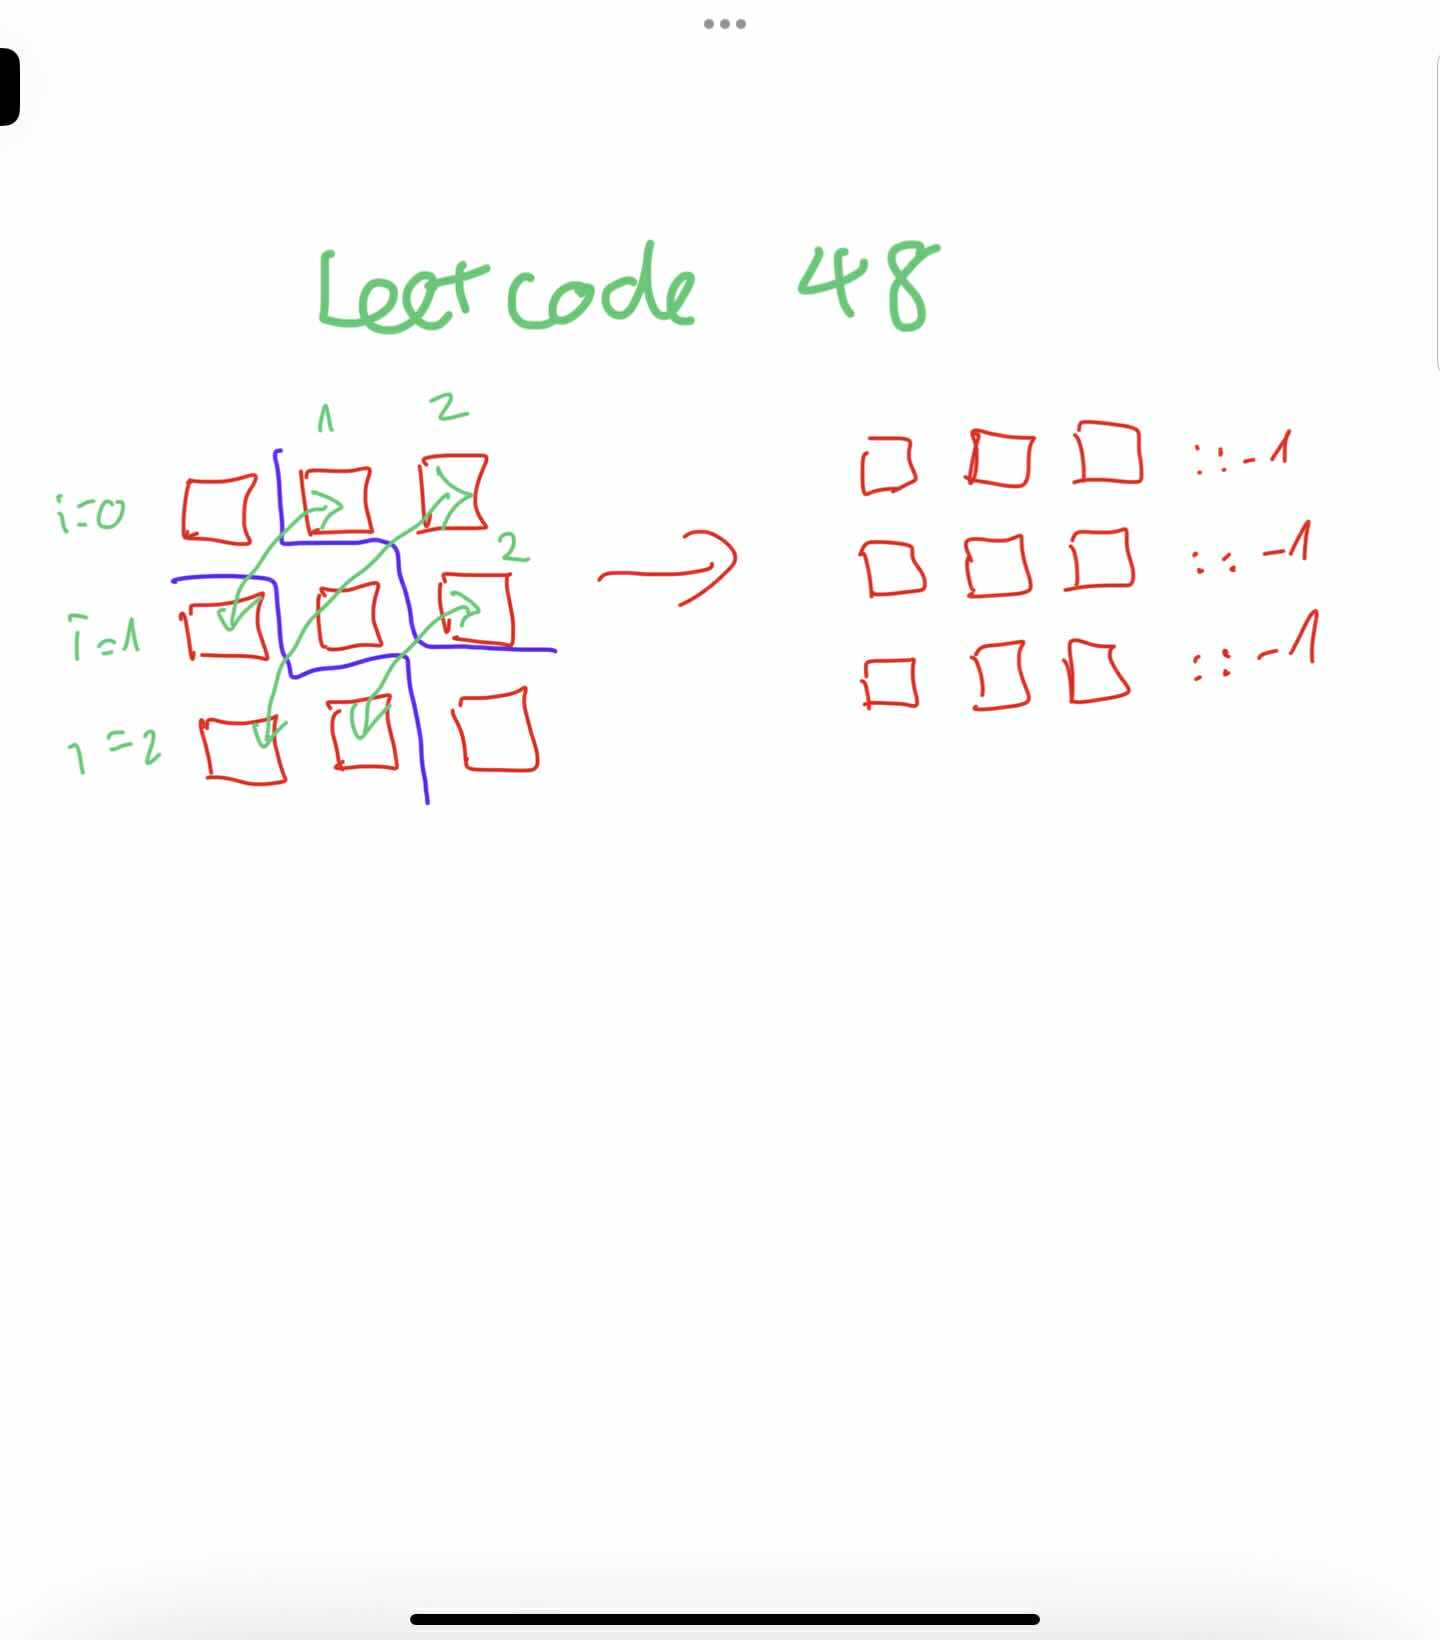 Leetcode 48
1 2
i=0
2
i=1
i=2
::-1
::-1
::-1